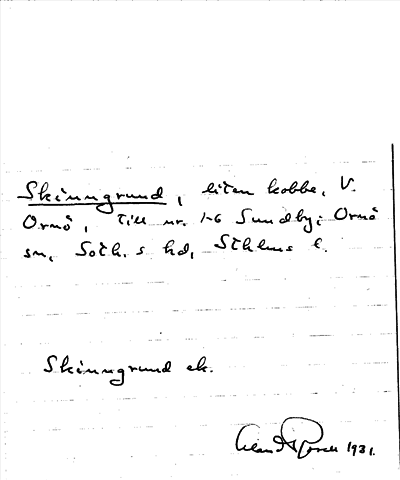 Skinngrund, liten kobbe, V.
Ornö, Till nr. 1-6 Sundby; Ornö
sn, Soth. s hd, Sthlms l.
Skinngrund ek.
1931.